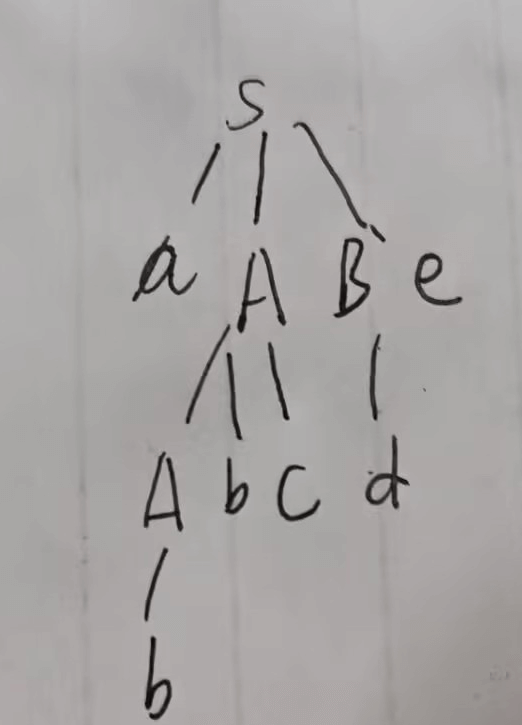 S
a A B e
A b c d
b